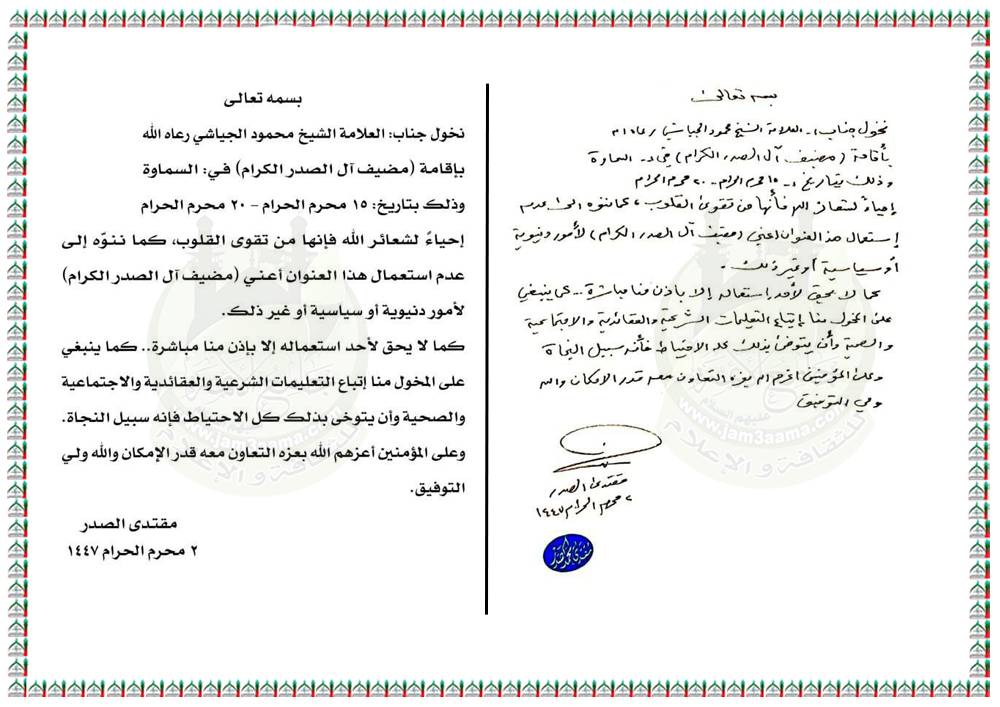 بسمه تعالى
نخول جناب: العلامة الشيخ محمود الجياشي رعاه الله
بإقامة (مضيف آل الصدر الكرام) في: السماوة
وذلك بتاريخ: ١٥ محرم الحرام - ٢٠ محرم الحرام
إحياءً لشعائر الله فإنها من تقوى القلوب، كما ننوه إلى عدم
إستعمال هذا العنوان أعني (مضيف آل الصدر الكرام) لأمور دنيوية
أو سياسية أو غير ذلك.
كما لا يحق لأحد استعماله إلا بإذن منا مباشرة.. كما ينبغي
على المخول منا إتباع التعليمات الشرعية والعقائدية والاجتماعية
والصحية وأن يتوخى بذلك كل الاحتياط فأنه سبيل النجاة
وعلى المؤمنين اعزهم الله بعزه التعاون معه قدر الامكان والله
ولي التوفيق
مقتدى الصدر
٢ محرم الحرام ١٤٤٧
بسمه تعالى
نخول جناب: العلامة الشيخ محمود الجياشي رعاه الله
بإقامة (مضيف آل الصدر الكرام) في: السماوة
وذلك بتاريخ: ١٥ محرم الحرام - ٢٠ محرم الحرام
إحياءً لشعائر الله فإنها من تقوى القلوب، كما ننوّه إلى
عدم استعمال هذا العنوان أعني (مضيف آل الصدر الكرام)
لأمور دنيوية أو سياسية أو غير ذلك.
كما لا يحق لأحد استعماله إلا بإذن منا مباشرة.. كما ينبغي
على المخول منا إتباع التعليمات الشرعية والعقائدية والاجتماعية
والصحية وأن يتوخى بذلك كل الاحتياط فإنه سبيل النجاة.
وعلى المؤمنين أعزهم الله بعزه التعاون معه قدر الإمكان والله ولي
التوفيق.
مقتدى الصدر
٢ محرم الحرام ١٤٤٧
www.jam3aama.com
للثقافة و الإعلام
www.jam3aama.com
للثقافة و الإعلام